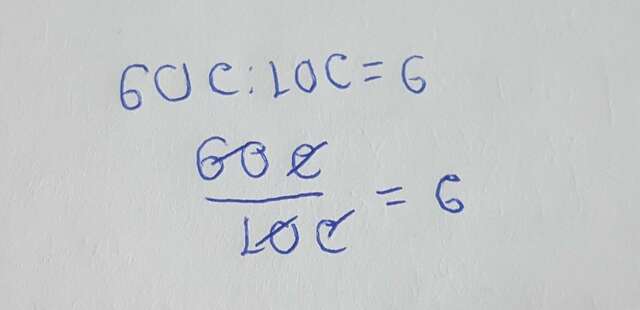 60c:10c=6
60c
10c = 6